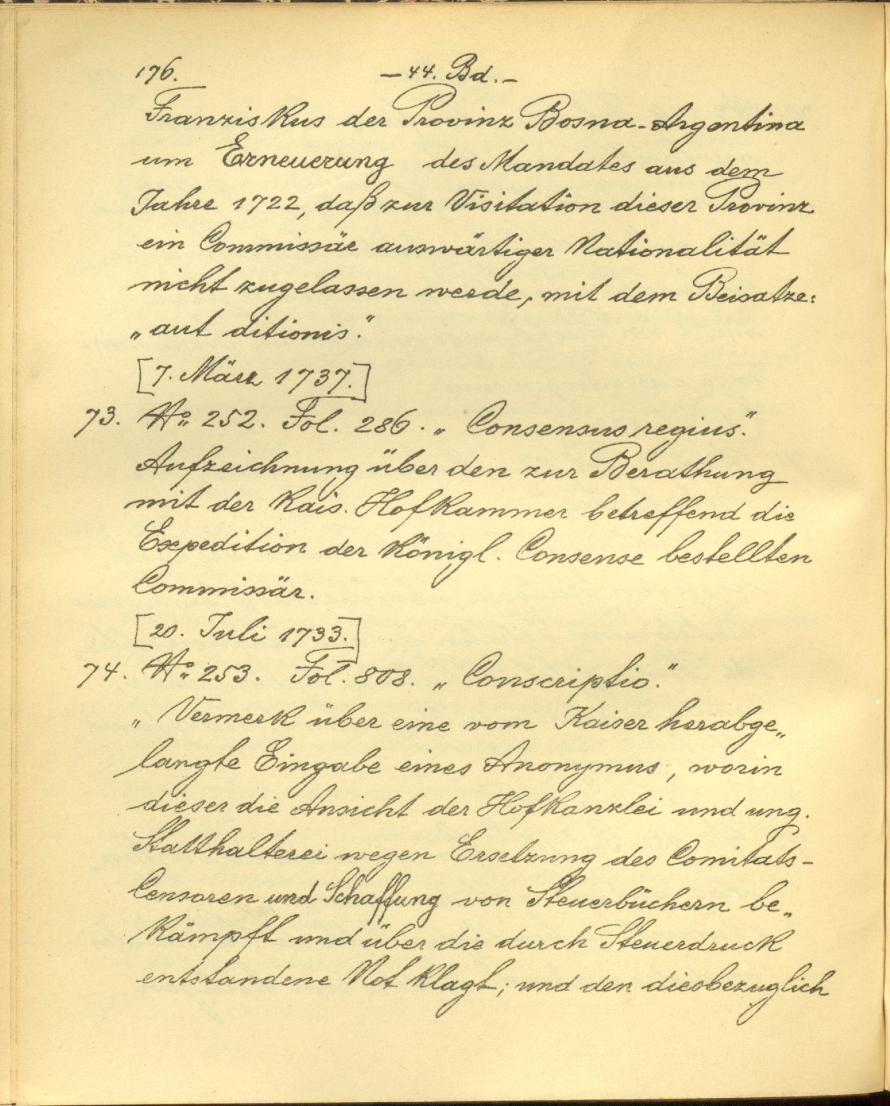 176.
— 44. Bd. —
Franziskus der Provinz Bosna-Argentina
um Erneuerung des Mandates aus dem
Jahre 1722, daß zur Visitation dieser Provinz
ein Commissär auswärtiger Nationalität
nicht zugelassen werde, mit dem Beisatze:
„aut ditionis".
[7. März 1737.]
73. No: 252. Fol. 286. „Consensus regius".
Aufzeichnung über den zur Berathung
mit der Kais. Hofkammer betreffend die
Expedition der Königl. Consense bestellten
Commissär.
[20. Juli 1733.]
74. No: 253. Fol. 808. „Conscriptio."
„Vermerk über eine vom Kaiser herabge„
langte Eingabe eines Anonymus, worin
dieser die Ansicht der Hofkanzlei und ung.
Statthalterei wegen Ersetzung des Comitats-
Censoren und Schaffung von Steuerbüchern be„
kämpft und über die durch Steuerdruck
entstandene Not klagt; und den diesbezüglich